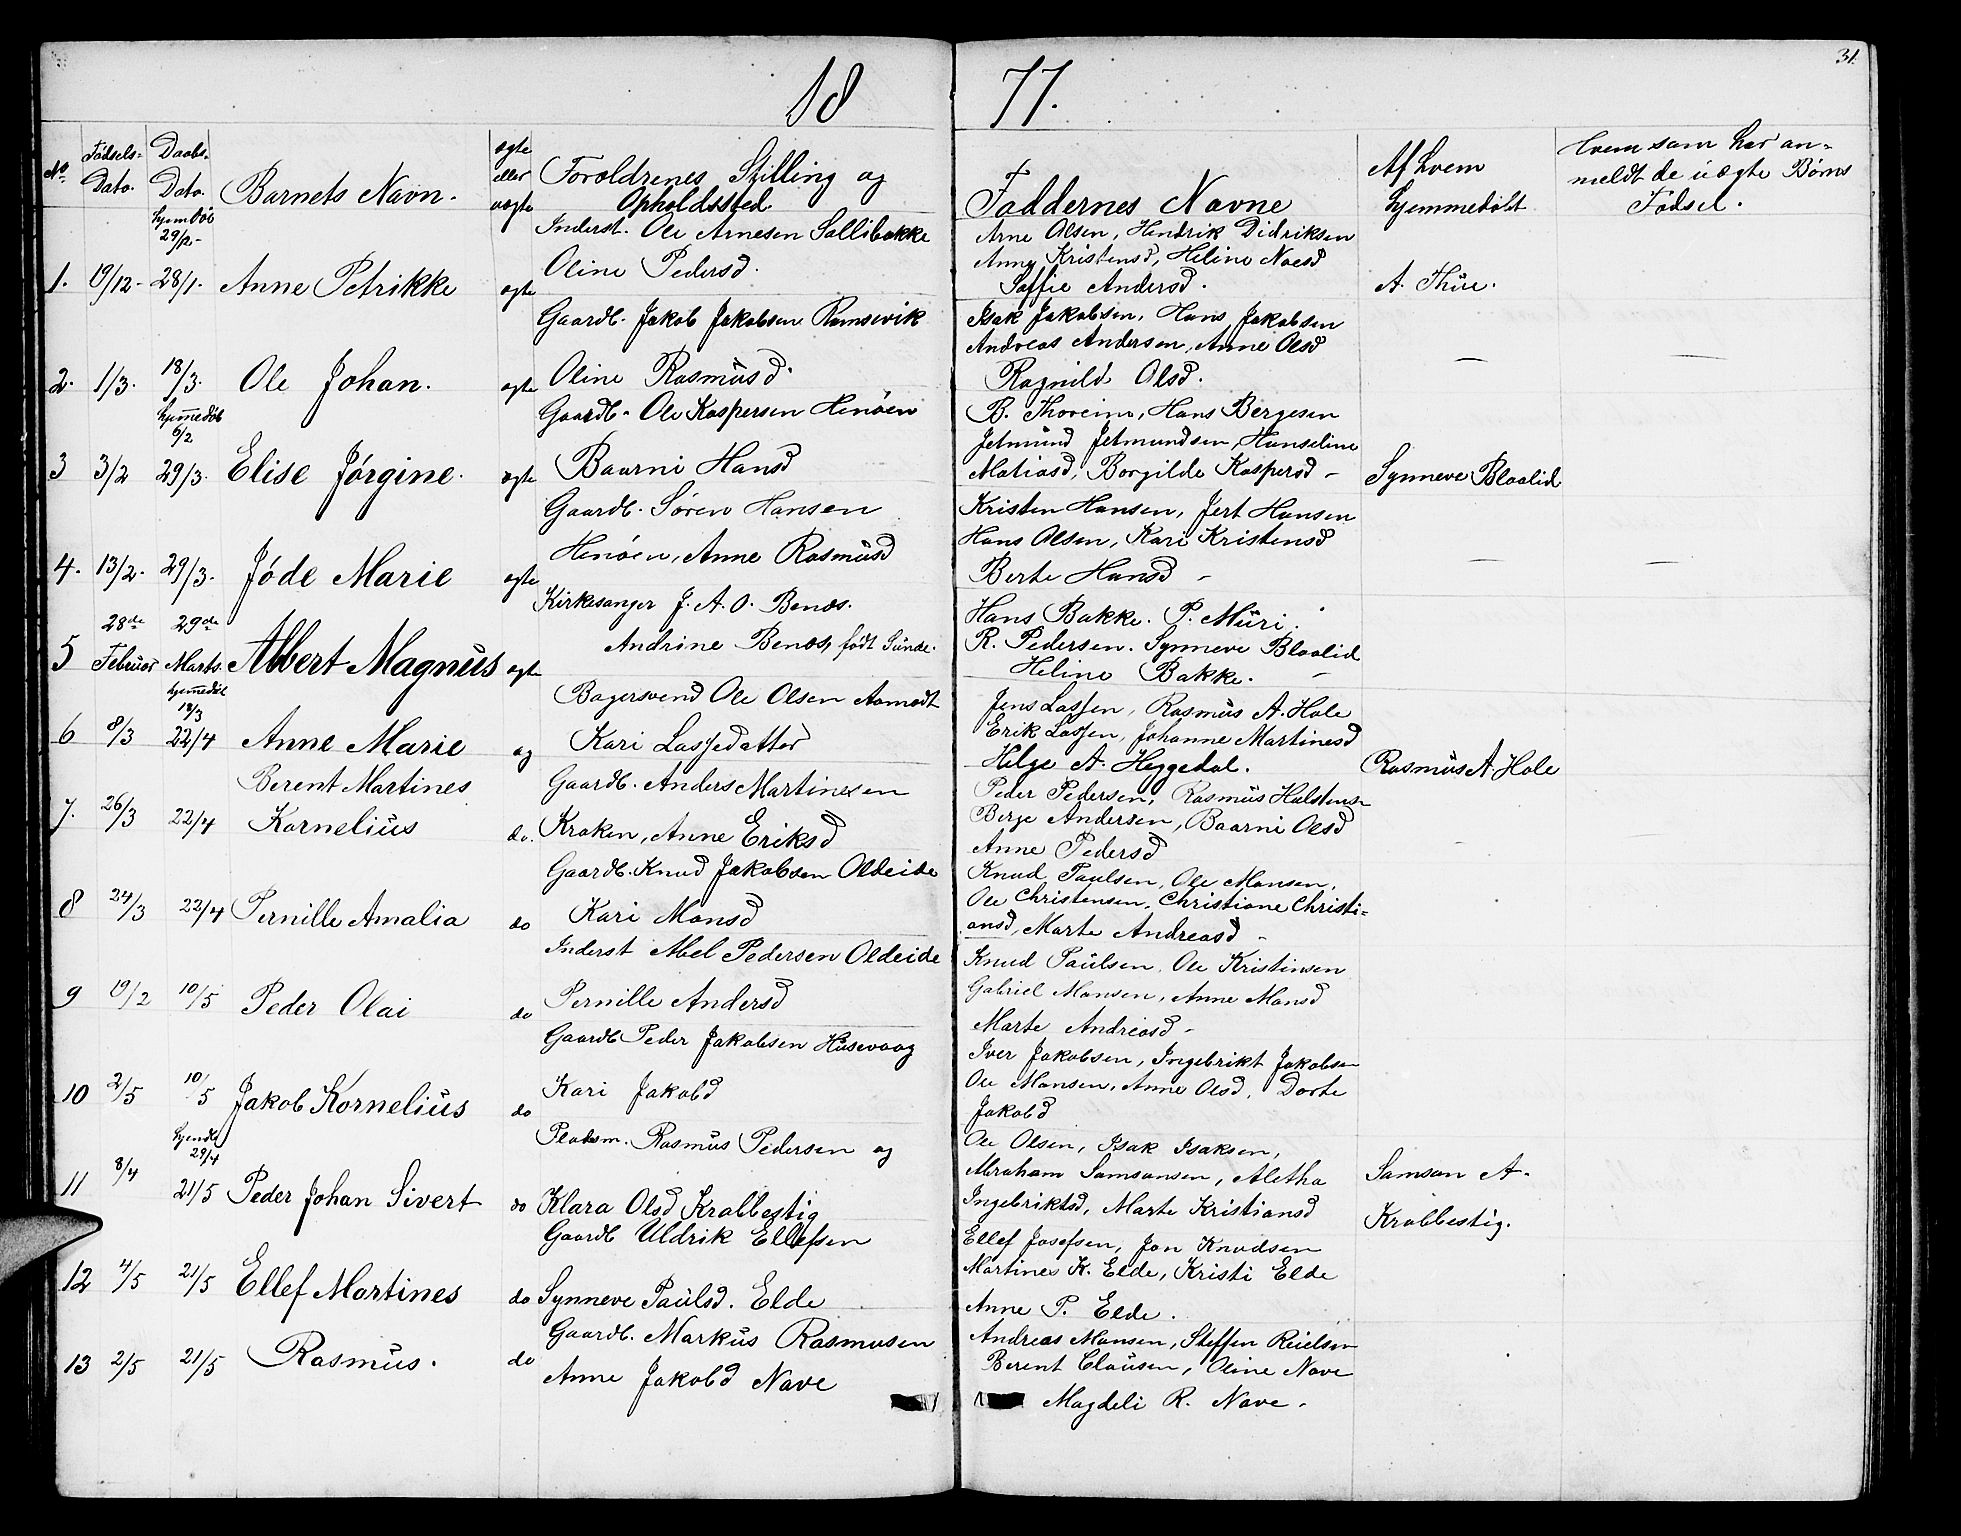 1877.
31.
No. Fødsels-Dato. Daabs-Dato. Barnets Navn. ægte eller uægte Forældrenes Stilling og Opholdssted Faddernes Navne Af hvem hjemmedøbt Hvem som har anmeldt de uægte Børns Fødsel.
hjemdøb 29/12- Inderst. Ole Arnesen Sollibakke Arne Olsen, Hendrik Didriksen
1. 19/12- 28/1. Anne Petrikke ægte Oline Pedersd. Anny Kristensd, Heline Noesd A. Thue.
Soffie Andersd.
Gaardb. Jakob Jakobsen Ramsevik Isak Jakobsen, Hans Jakobsen
Andreas Andersen, Anne Olsd
2. 1/3. 18/3. Ole Johan. ægte Oline Rasmusd. Ragnild Olsd. — —
hjemmedøb 6/2 Gaardb. Ole Kaspersen Henøen B. Thoreim, Hans Bergesen
Jetmund Jetmundsen, Hanseline
3 3/2 29/3. Elise Jørgine. ægte Baarni Hansd Matiasd, Borgilde Kaspersd - Synneve Blaalid
Gaardb. Søren Hansen Kristen Hansen, Jert Hansen
Henøen, Anne Rasmusd Hans Olsen, Kari Kristensd
4. 13/2. 29/3. Jøde Marie ægte Berte Hansd - — —
Kirkesanger J. A. O. Benæs. Hans Bakke. P. Muri.
28de 29de Andrine Benæs, født Sunde. R. Pedersen. Synneve Blaalid
5 Februar Marts. Albert Magnus ægte Heline Bakke. -
hjemmedøb 18/3 Bagersvend Ole Olsen Aamodt Jens Lassen, Rasmus A. Hole
6 8/3 22/4 Anne Marie og Kari Lassedatter Erik Lassen, Johanne Martinesd
Helge A. Heggedal. Rasmus A. Hole
Berent Martines Gaardb. Anders Martinesen Peder Pedersen, Rasmus Halstens-
7. 26/3 22/4 Kornelius do. Kraken, Anne Eriksd Berge Andersen, Baarni Olsd
Anne Pedersd
Gaardb. Knud Jakobsen Oldeide Knud Paulsen, Ole Monsen,
8 24/3 22/4 Pernille Amalia do Kari Monsd Ole Christensen, Christiane Christi=
ansd, Marte Andreasd -
Inderst Abel Pedersen Oldeide Knud Paulsen, Ole Kristinsen
9 19/2 10/5 Peder Olai do Pernille Andersd Gabriel Monsen, Anne Monsd
Marte Andreasd -
Gaardb Peder Jakobsen Husevaag Iver Jakobsen, Ingebrikt Jakobsen
10 2/5 10/5 Jakob Kornelius do Kari Jakobd Ole Monsen, Anne Olsd, Dorte
Jakobd
hjemdb 29/4 Pladsm. Rasmus Pedersen og Ole Olsen, Isak Isaksen,
11 8/4 21/5 Peder Johan Sivert do Klara Olsd Krabbestig Abraham Samsonsen, Aletha Samson A.
Ingebriktsd, Marte Kristiansd Krabbestig.
Gaardb Uldrik Ellefsen Ellef Josefsen, Jon Knudsen
12 4/5 21/5 Ellef Martines do Synneve Paulsd. Elde Martines K. Elde, Kristi Elde
Anne P. Elde.
Gaardb. Markus Rasmusen Andreas Monsen, Steffen Reielsen
13 2/5 21/5 Rasmus. do Anne Jakobd Nave Berent Clausen, Oline Nave
Magdeli R. Nave.